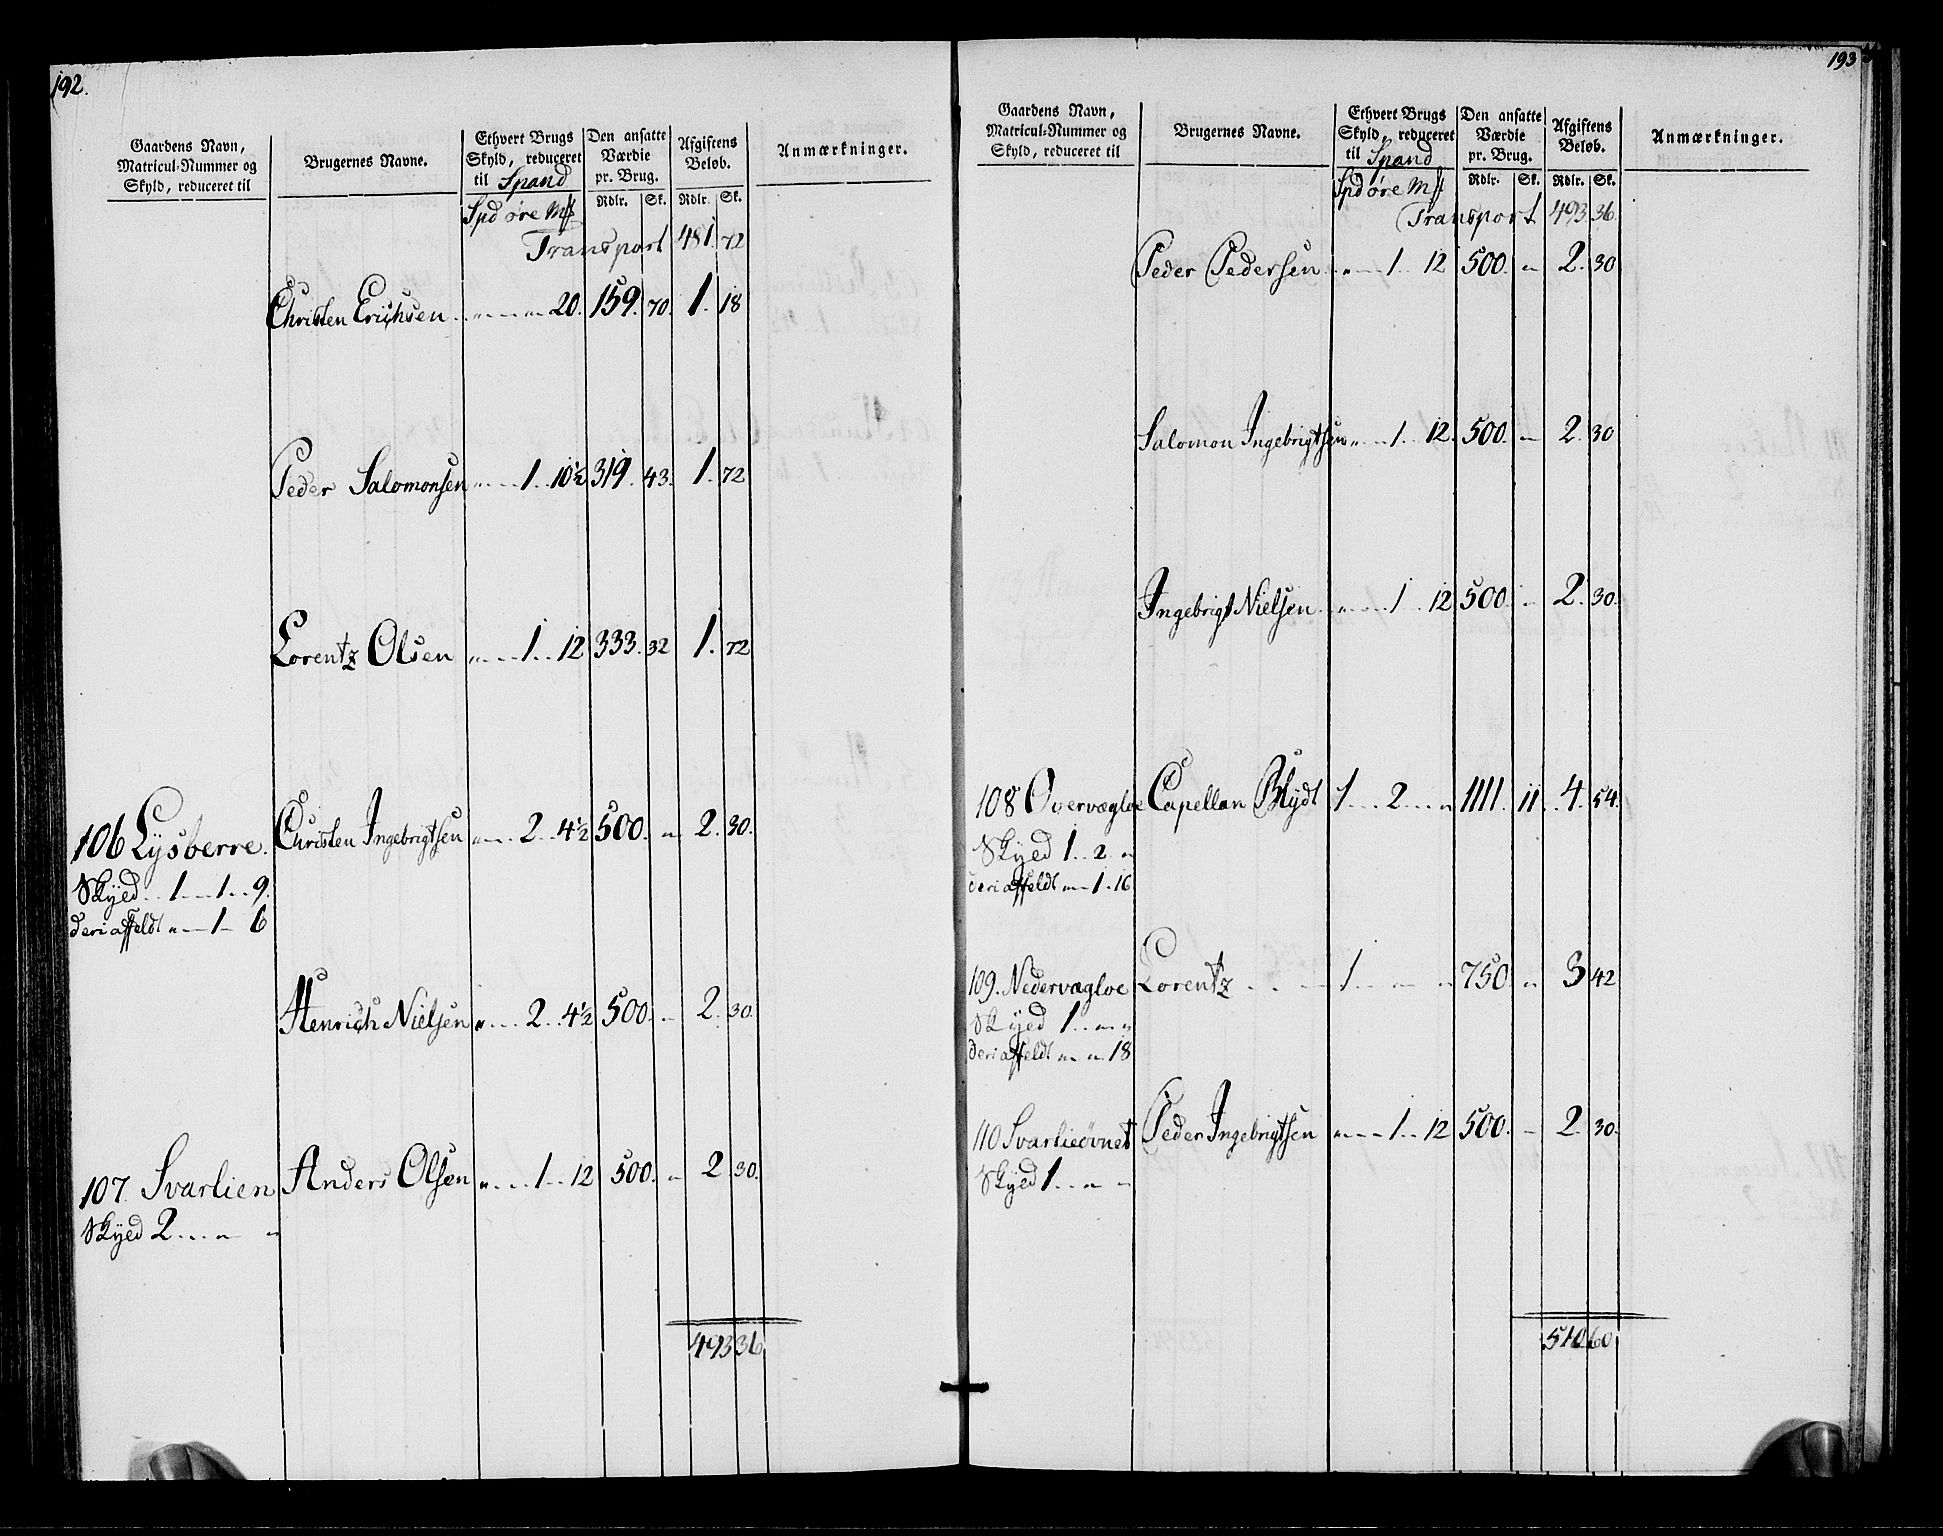 192.
Gaardens Navn, Matricul-Nummer og Skyld, reduceret til
Brugernes Navne.
Ethvert Brugs Skyld, reduceret til Spand
Den ansatte Værdie pr. Brug.
Afgiftens Beløb.
Anmærkninger.
Spd øre Mk
Rdlr. Sk. Rdlr. Sk.
Transport 481. 72
Christen Erichsen . . „ — „ 20. 159. 70. 1. 18
Peder Salomonsen „ . . 1 . . 10½ 319. 43. 1. 72
Lorentz Olsen „ . . 1 . . 12 333. 32 1. 72
106 Lysberre. Christen Ingebrigtsen „ . . 2 . . 4½ 500. „ 2. 30.
Skyed . . 1 . . 1 . . 9.
deri affeldt „ — 1 — 6
Henrich Nielsen „ . . 2 . . 4½ 500. „ 2. 30.
107. Svarlien Anders Olsen „ . . 1 . . 12 500. „ 2 30.
Skyed 2 . . „ „
493 36
193
Gaardens Navn, Matricul-Nummer og Skyld, reduceret til
Brugernes Navne.
Ethvert Brugs Skyld, reduceret til Spand
Den ansatte Værdie pr. Brug.
Afgiftens Beløb.
Anmærkninger.
Spd øre Mk
Rdlr. Sk. Rdlr. Sk.
Transport 493. 36.
Peder Pedersen „ — 1 . . 12 500. „ 2. 30
Salomon Ingebrigtsen „ . . 1 . . 12. 500. — 2. 30
Ingebrigt Nielsen „ . . 1 . . 12 500. „ 2. 30.
108 Overvægloe Capellan Blydt 1 . . 2 . . „ 1111. 11 . 4. 54.
Skyed 1 . . 2 . „
deri affeldt „ — 1 . 16
109. Nedervægloe Lorentz . . . 1 . . — „ 750. „ 3 42
Skyed 1 . . „ „
deri affeldt „ „ 18
110 Svarlieövnet Peder Ingebrigtsen „ — 1 . . 12 500. — 2. 30.
Skyed 1 . . „ „
510 60